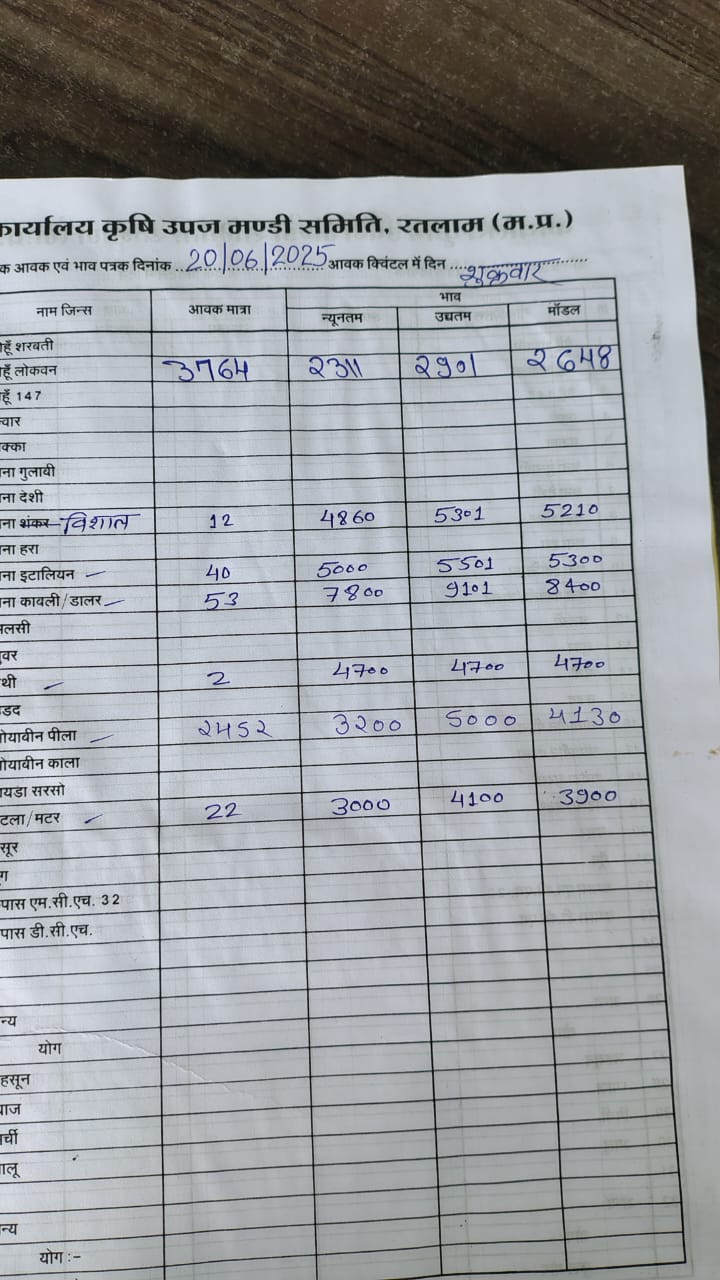 कार्यालय कृषि उपज मण्डी समिति, रतलाम (म.प्र.)
क आवक एवं भाव पत्रक दिनांक 20/06/2025 आवक क्विंटल में दिन शुक्रवार
नाम जिन्स आवक मात्रा भाव
न्यूनतम उच्चतम मॉडल
हूँ शरबती
हूँ लोकवन 3764 2311 2901 2648
हूँ 147
वार
क्का
ना गुलाबी
ना देशी
ना शंकर विशाल 12 4860 5301 5210
ना हरा
ना इटालियन 40 5000 5501 5300
ना काबली/डालर 53 7800 9101 8400
लसी
वर
थी 2 4700 4700 4700
डद
ोयाबीन पीला 2452 3200 5000 4130
ोयाबीन काला
यडा सरसो
टला/मटर 22 3000 4100 3900
सूर
ग
पास एम.सी.एच. 32
पास डी.सी.एच.
न्य
योग
हसून
याज
र्ची
ालू
न्य
योग :-